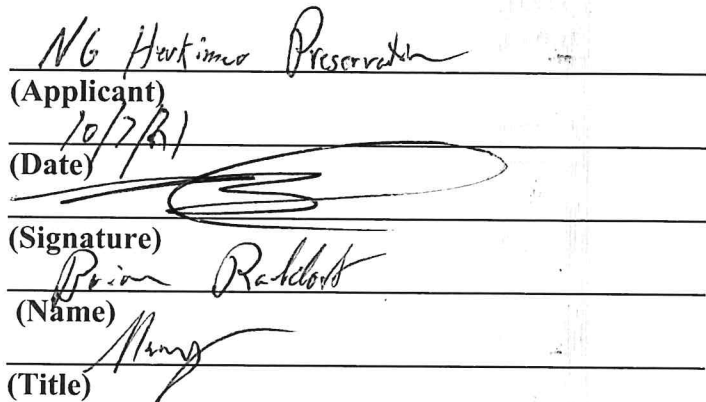 NG Herkimer Preservation
(Applicant)
10/7/21
(Date)
(Signature)
Brian
(Name)
(Title)